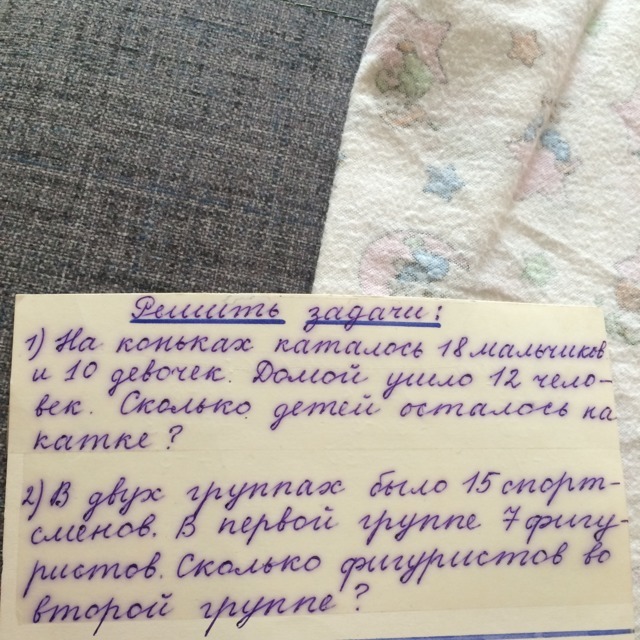 Решить задачи:
1) На коньках каталось 18 мальчиков
и 10 девочек. Домой ушло 12 чело-
век. Сколько детей осталось на
катке?
2) В двух группах было 15 спорт-
сменов. В первой группе 7 фигу-
ристов. Сколько фигуристов во
второй группе?